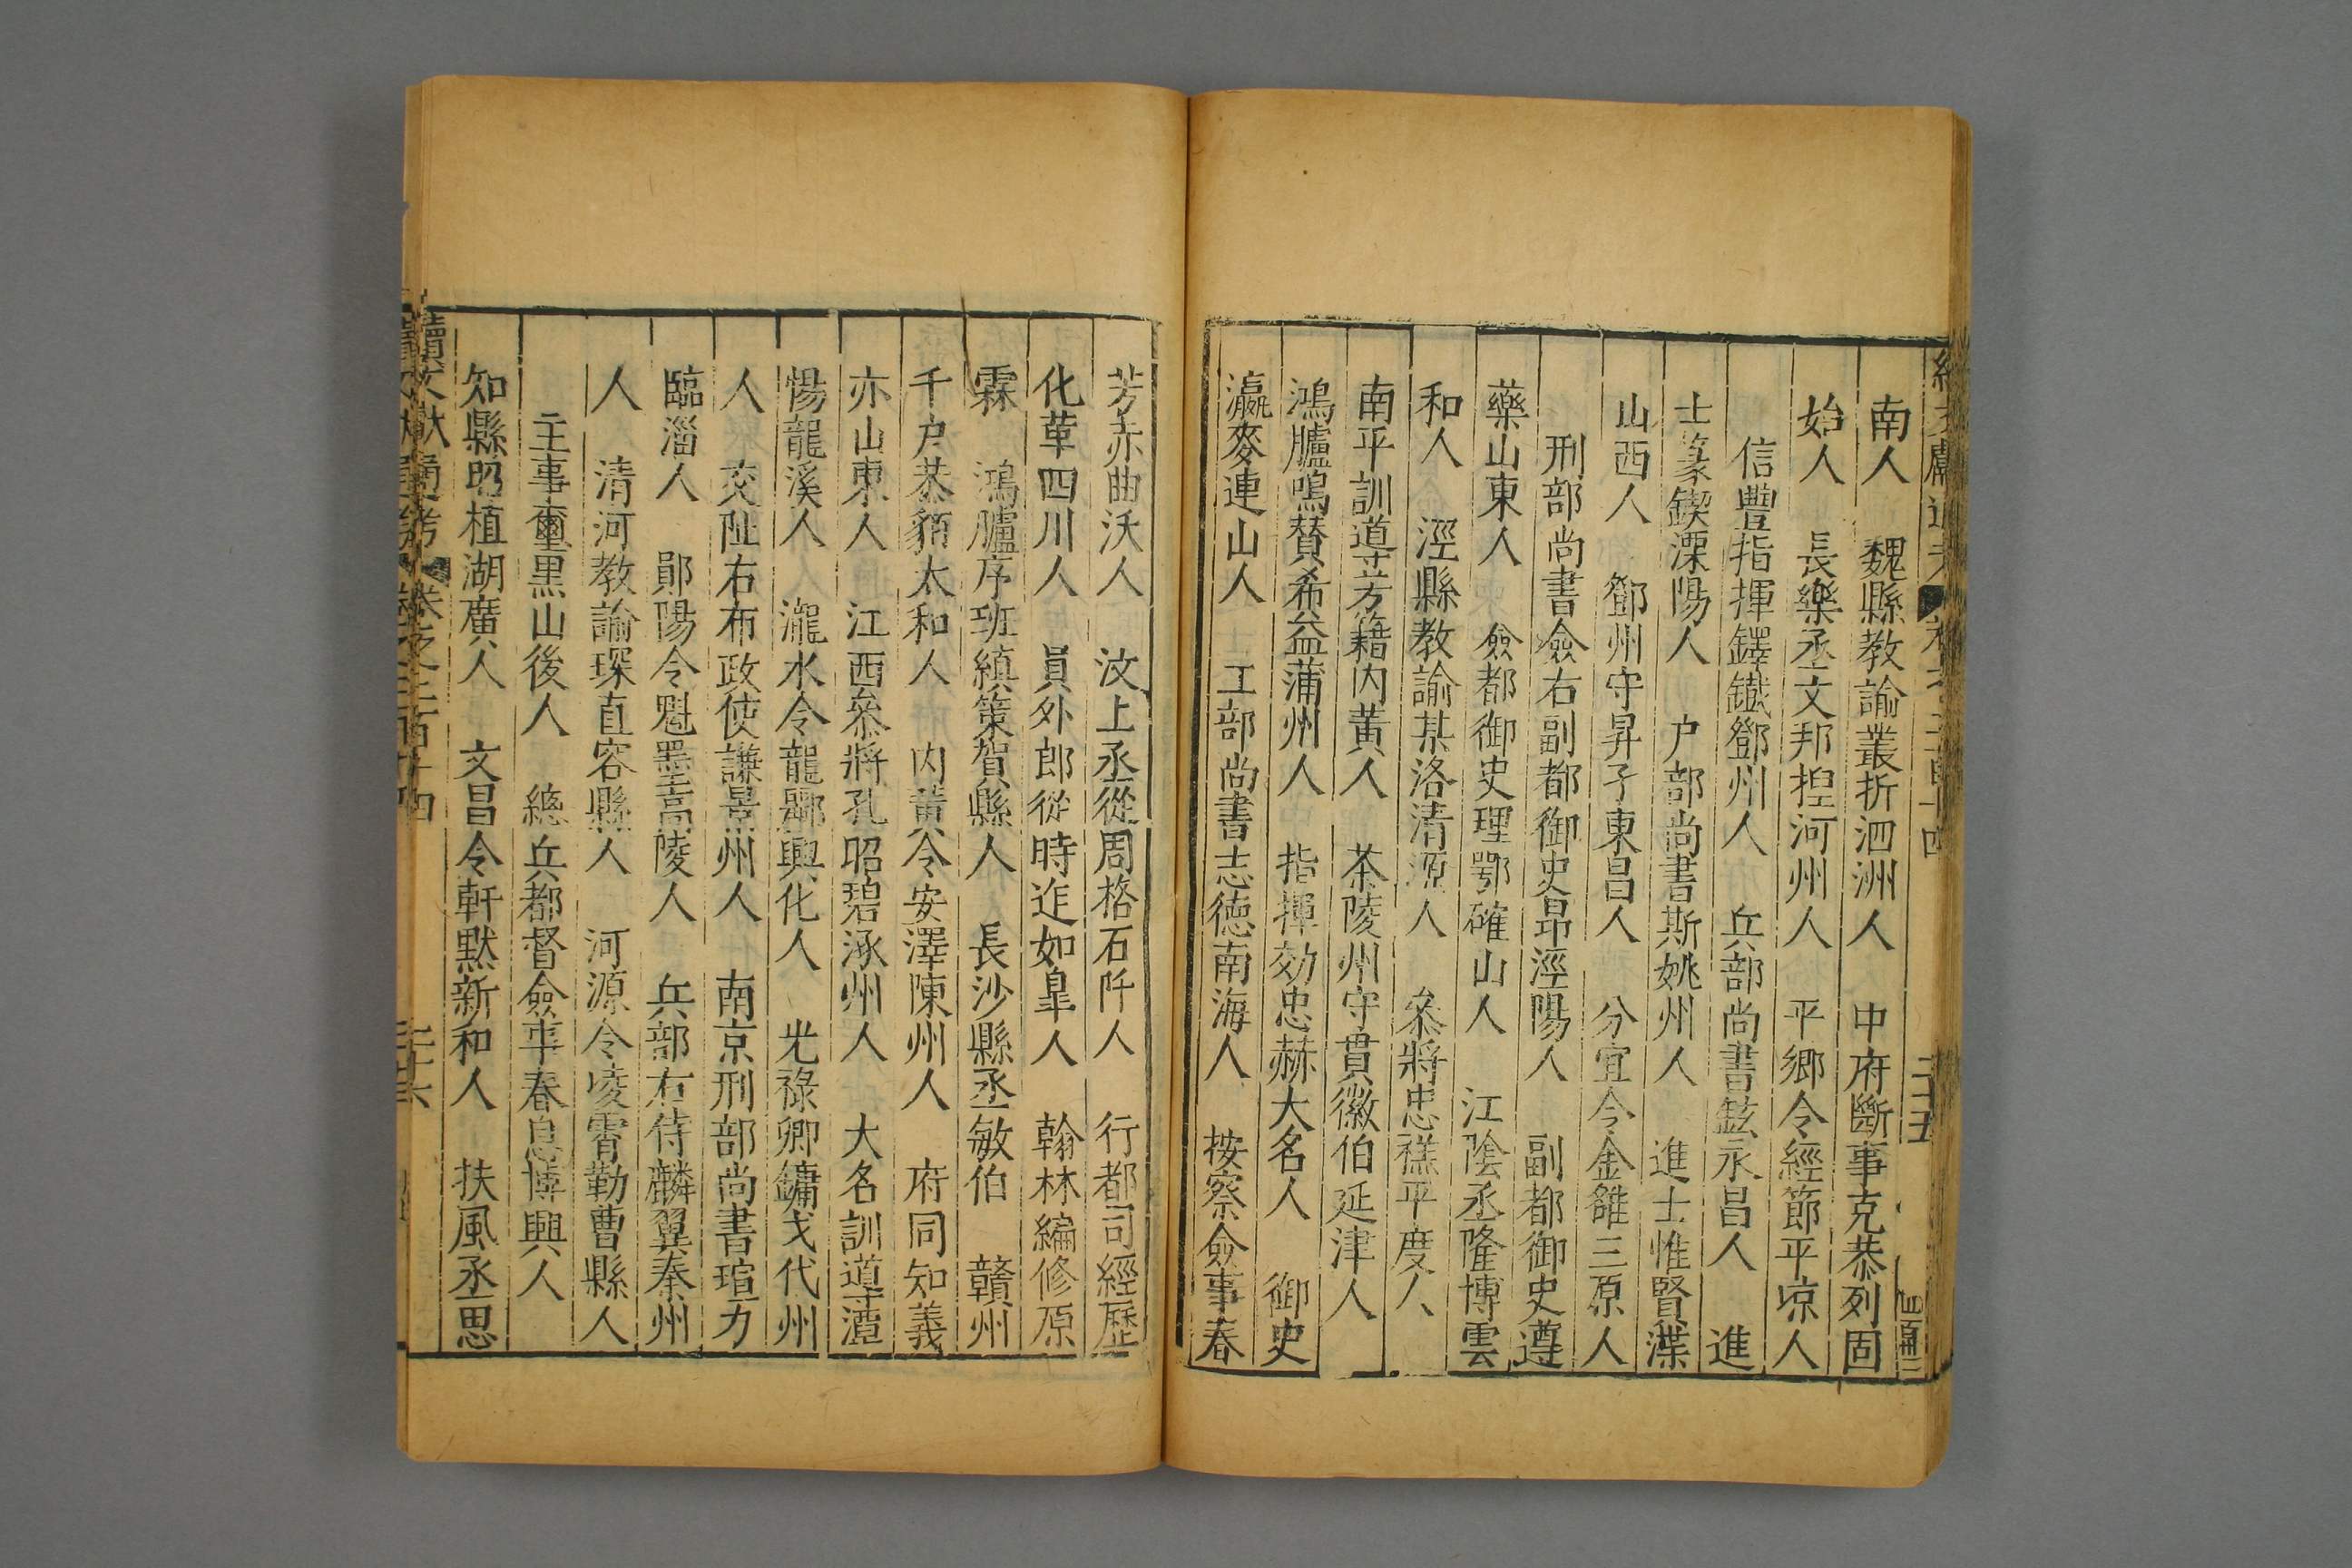 南人　魏縣教諭叢折泗洲人　中府斷事克恭列固
始人　長樂丞文邦揑河州人　平鄉令經節平凉人
信豐指揮鐸鐵鄧州人　兵部尚書鉉永昌人　進
士篆鍥溧陽人　户部尚書斯姚州人　進士惟賢渫
山西人　鄧州守昇孑東昌人　分宜令金雒三原人
刑部尚書僉右副都御史昂涇陽人　副都御史遵
藥山東人　僉都御史理鄂確山人　江陰丞隆博雲
和人　涇縣教諭某洛清源人　叅將忠襟平度人
南平訓導芳籍内黄人　茶陵州守貫徽伯延津人
鴻臚鳴賛希益蒲州人　指揮効忠赫大名人　御史
瀛麥連山人　工部尚書志德南海人　按察僉事春
芳赤曲沃人　汶上丞從周格石阡人　行都司經歷
化葷四川人　員外郎從時迮如臯人　翰林編修原
霖　鴻臚序班縝策賀縣人　長沙縣丞敏伯　贛州
千户恭貊太和人　内黄令安澤陳州人　府同知義
亦山東人　江西叅將孔昭碧涿州人　大名訓導潭
惕龍溪人　瀧水令龍酈興化人　光祿卿鏞戈代州
人　交阯右布政使謙景州人　南京刑部尚書瑄力
臨淄人　鄖陽令魁墨高陵人　兵部右侍麟翼秦州
人　清河教諭琛直容縣人　河源令凌霄勤曹縣人
主事璽黒山後人　總兵都督僉事春息博興人
知縣昭植湖廣人　文昌令軒黙新和人　扶風丞思
續文獻通考　卷之二百十四　二十六